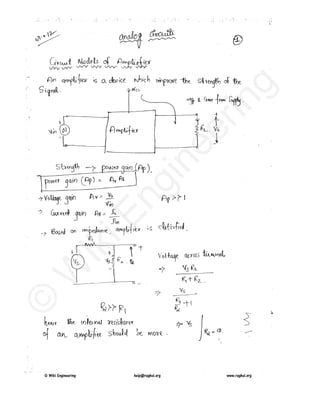 analog circuits
①
Circuit Models of Amplifier
An amplifier is a device which improve the strength of the
Signal.
Vin
Amplifier
RL
Vo
Strength → power gain (Ap).
power gain (Ap) = Av AI
→ Voltage gain Av = Vo/Vin
Ap >> 1
→ Current gain AI = Io/Iin
→ Based on impedance, amplifier is classified.
R1
Voltage across terminal
Vs
⇒ Vs RL / R1 + R2
⇒ Vs / R1/R2 + 1
R2 >> R1
hence the internal resistance
of an amplifier should be more.
⇒ Vs
© Wiki Engineering
© Wiki Engineering
help@raghul.org
www.raghul.org